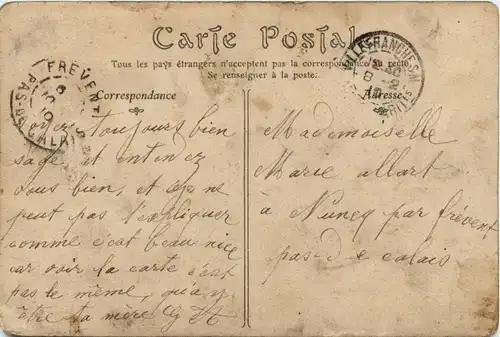 Carte Postal
Tous les pays étrangers n'acceptent pas la correspondance au recto
Se renseigner à la poste.
Correspondance
Adresse
FRÉVENT
PAS-DE-CALAIS
VILLEFRANCHE-S-M
toujours bien
sage et
vous bien, et ne
peut pas l'expliquer
comme c'est beau nice
car voir la carte c'est
pas le même, qu'a y
être ta mere
Mademoiselle
Marie allart
à Nuncq par frévent
pas-d-e calais